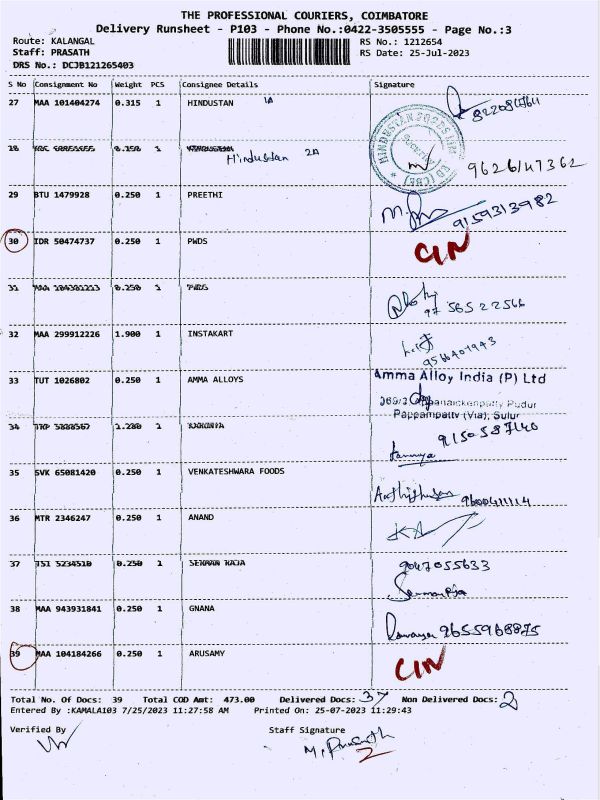 THE PROFESSIONAL COURIERS, COIMBATORE
Delivery Runsheet - P103 - Phone No.:0422-3505555 - Page No.:3
Route: KALANGAL
RS No.: 1212654
Staff: PRASATH
RS Date: 25-Jul-2023
DRS No.: DCJB121265403
S No Consignment No Weight PCS Consignee Details Signature
27 MAA 101404274 0.315 1 HINDUSTAN 1A
28 1 Hindustan 2A 9626147362
29 BTU 1479928 0.250 1 PREETHI 9159313982
30 IDR 50474737 0.250 1 PWDS CIN
31 1 97 565 22566
32 MAA 299912226 1.900 1 INSTAKART
33 TUT 1026802 0.250 1 AMMA ALLOYS Amma Alloy India (P) Ltd
Pappampatty (Via), Sulur
34 1 9150587140
35 SVK 65081420 0.250 1 VENKATESHWARA FOODS 9600411114
36 MTR 2346247 0.250 1 ANAND
37 TSI 5234510 0.250 1 9047055633
38 MAA 943931841 0.250 1 GNANA 9655968875
39 MAA 104184266 0.250 1 ARUSAMY CIN
Total No. Of Docs: 39 Total COD Amt: 473.00 Delivered Docs: 37 Non Delivered Docs: 2
Entered By :KAMALA103 7/25/2023 11:27:58 AM Printed On: 25-07-2023 11:29:43
Verified By
Staff Signature
M. Prasath
2